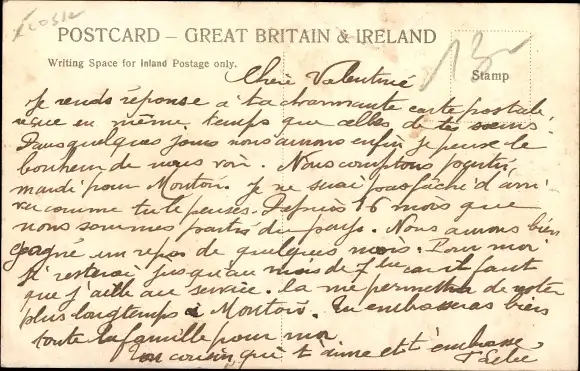 Ecosse
POSTCARD – GREAT BRITAIN & IRELAND
Writing Space for Inland Postage only.
Stamp
Chère Valentine
Je rends réponse à ta charmante carte postale
reçue en même temps que celles de tes sœurs.
Dans quelques jours nous aurons enfin je pense le
bonheur de nous voir. Nous comptons partir
mardi pour Moutou. Je ne serai pas fâché d'arri
ver comme tu le penses. Depuis 16 mois que
nous sommes partis du pays. Nous aurons bien
gagné un repos de quelques mois. Pour moi
je resterai jusqu'au mois de car il faut
que j'aille au service. Ça me permettra de rester
plus longtemps à Moutou. Tu embrasseras bien
toute la famille pour moi
Ton cousin qui t'aime et t'embrasse